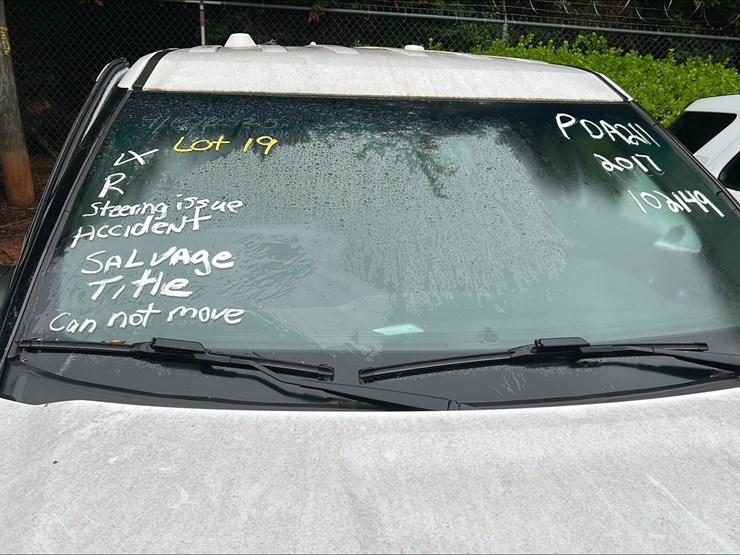 Lot 19
LX
R
Steering issue
ACCIDENT
SALVAge
Title
Can not move
PDA2611
2017
102149